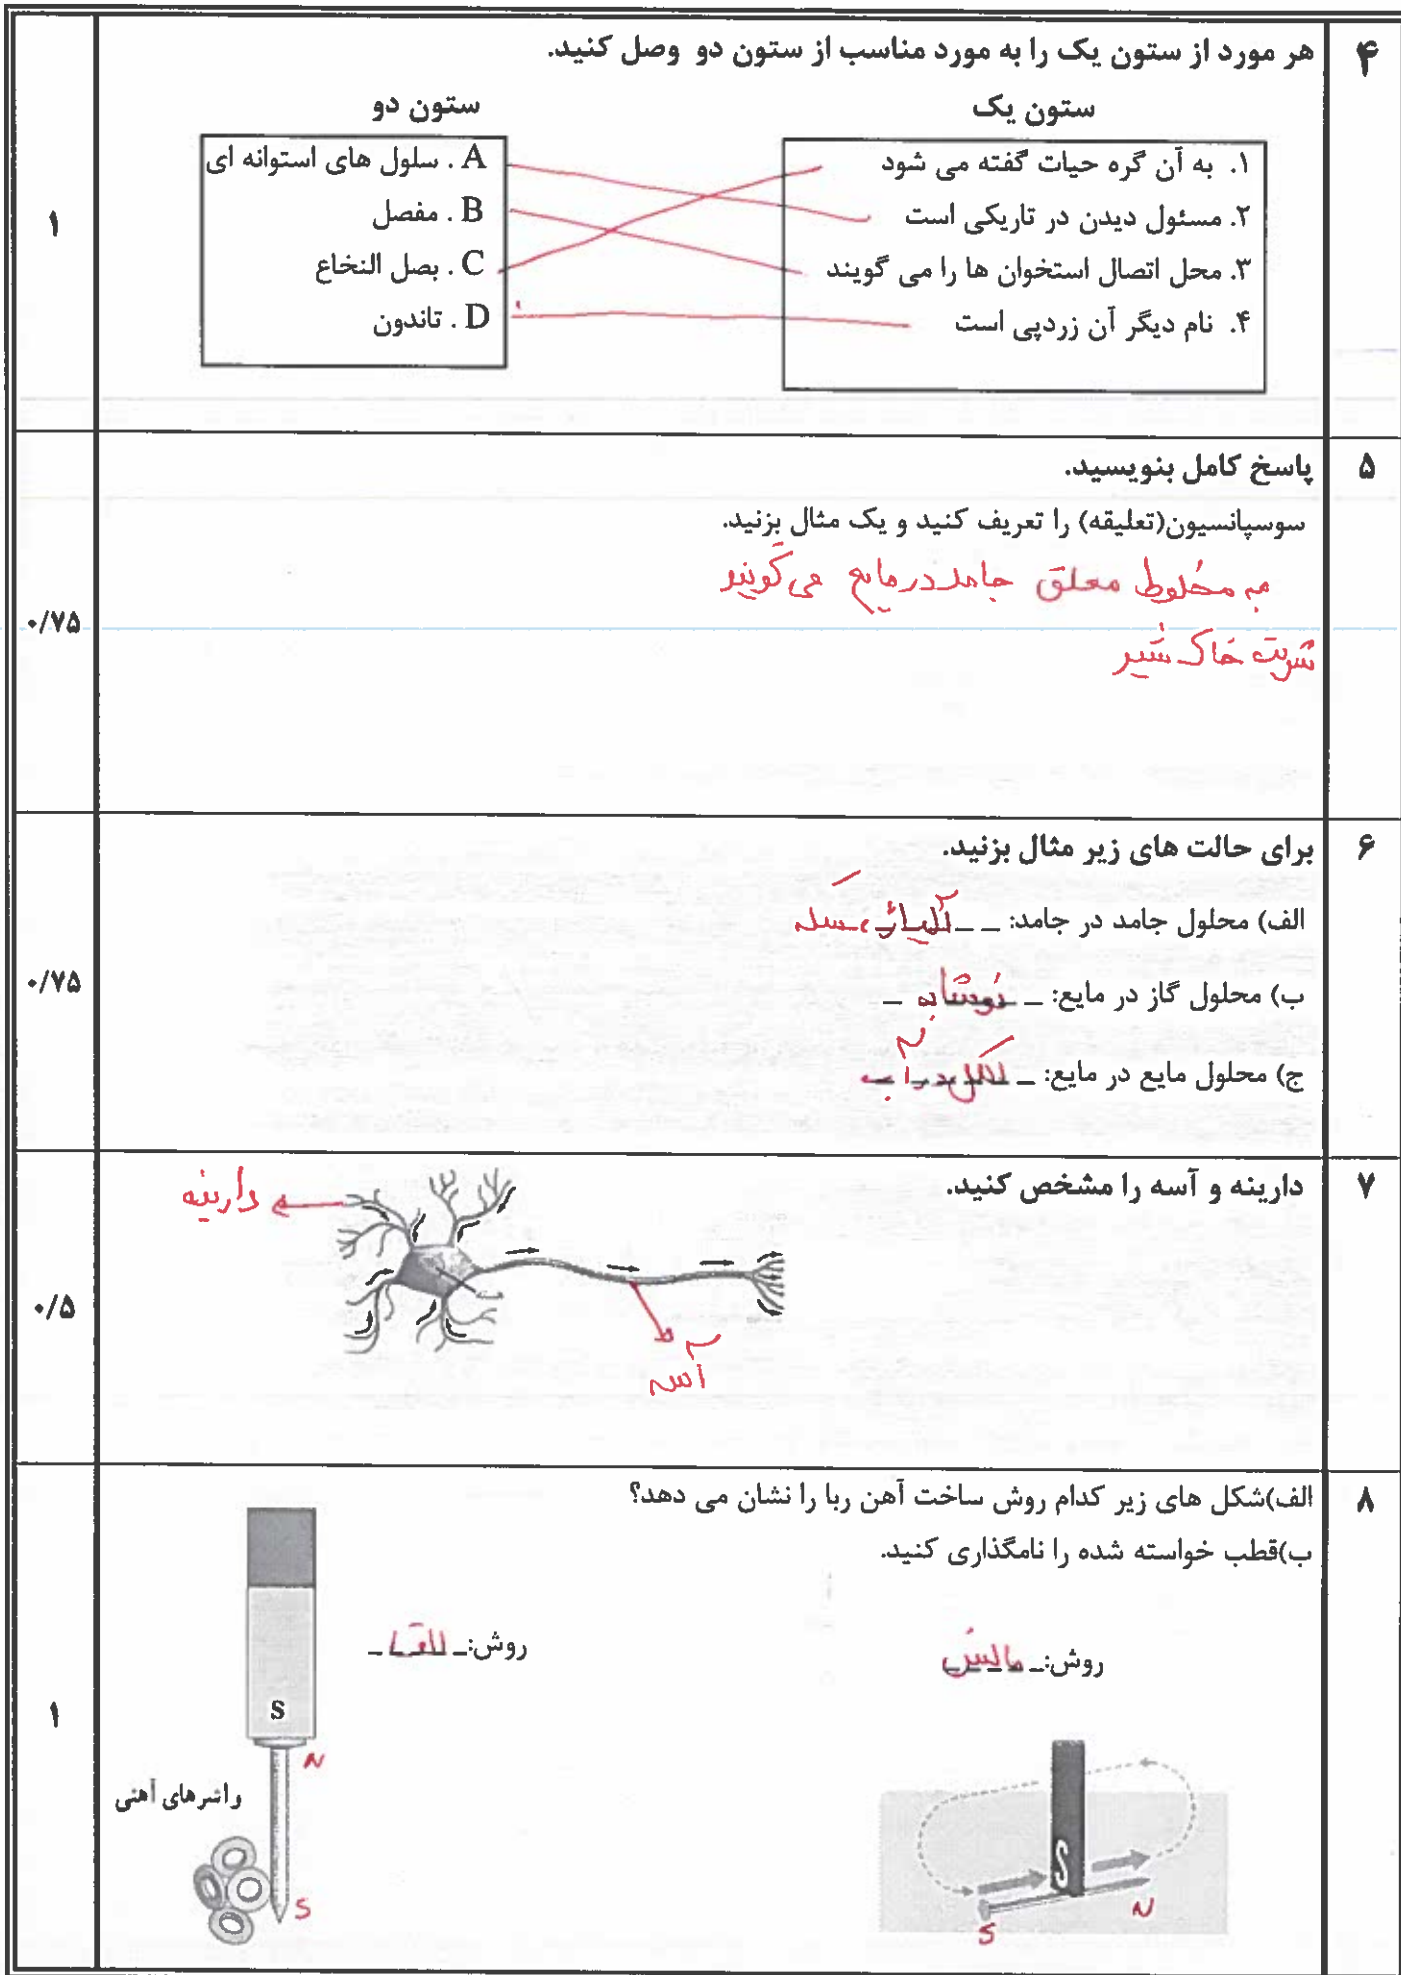 ۴
هر مورد از ستون یک را به مورد مناسب از ستون دو وصل کنید.
ستون یک
۱. به آن گره حیات گفته می شود
۲. مسئول دیدن در تاریکی است
۳. محل اتصال استخوان ها را می گویند
۴. نام دیگر آن زردپی است
ستون دو
A . سلول های استوانه ای
B . مفصل
C . بصل النخاع
D . تاندون
۱
۵
پاسخ کامل بنویسید.
سوسپانسیون(تعلیقه) را تعریف کنید و یک مثال بزنید.
به مخلوط معلق جامد در مایع می گویند
شربت خاک شیر
۰/۷۵
۶
برای حالت های زیر مثال بزنید.
الف) محلول جامد در جامد: آلیاژ، سکه
ب) محلول گاز در مایع: نوشابه
ج) محلول مایع در مایع: الکل در آب
۰/۷۵
۷
دارینه و آسه را مشخص کنید.
دارینه
آسه
۰/۵
۸
الف)شکل های زیر کدام روش ساخت آهن ربا را نشان می دهد؟
ب)قطب خواسته شده را نامگذاری کنید.
روش: مالش
S
S
N
روش: القا
S
N
واشرهای آهنی
S
۱